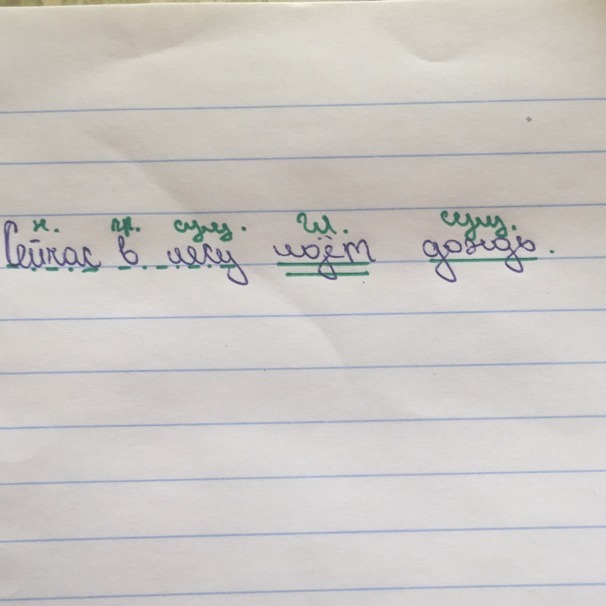 н. пр. сущ. гл. сущ.
Сейчас в лесу льёт дождь.